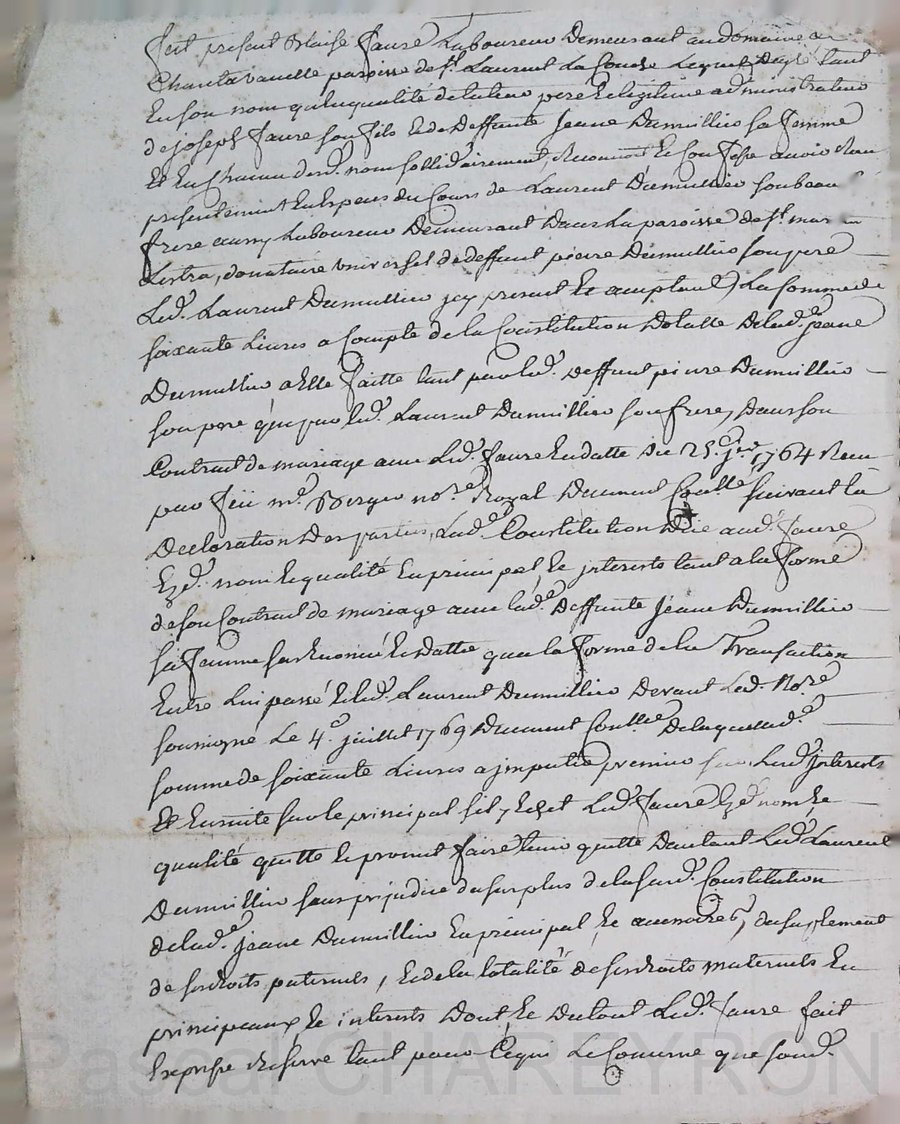 fait present Blaise Faure Laboureur Demeurant au domaine de
Chantavauelle paroisse de st. Laurent La Conche Lequel tant
En son nom qu'En qualité de tuteur pere et legitime administrateur
de joseph Faure son fils et de Deffunte Jeane Dumillier sa femme
Et En Chacun desd. noms sollidairement, Reconnoit Et Confesse avoir Receu
presentement En Especes du Cours de Laurent Dumillier son beau
frere aussy Laboureur Demeurant Dans La paroisse de st. mar
Lestra, donataire universel de deffunt pierre Dumillier son pere
Led. Laurent Dumillier jcy present Et acceptant, La somme de
soixante Livres a Compte de la Constitution Dotalle De lad.e jeane
Dumillier a Elle faitte tant par led. deffunt pierre Dumillier
son pere que par led. Laurent Dumillier son frere, dans son
Contrat de mariage avec Led. faure En datte du 25.e 1764 Receu
par feu me. Berger nore. Royal Deument Conllé suivant la
Declaration Des parties, Lad.e Constitution Düe aud. faure
Ezd. nom Et qualité En principal Et jnterests tant a la forme
de son Contrat de mariage avec lad.e Deffunte Jeane Dumillier
sa femme sus Enoncé Et datté que a la forme de la Transaction
Entre Lui passé Et led. Laurent Dumillier Devant Led. Nore
soussigné Le 4.e juillet 1769 Deument Conllée De laquelle d.e
somme de soixante Livres a jmputer premier sur Lesd. jnterests
Et Ensuite sur le principal s'il y Echet Led. faure Ezd. nom Et
qualité quitte Et promet faire tenir quitte Dautant Led. Laurent
Dumillier sans prejudice du surplus de la susd. Constitution
de lad.e jeane Dumillier En principal, Et accessoires, du suplement
de ses droits paternels, Et de la totalité de ses droits maternels En
principaux Et interests Dont Et Du tout Led. faure fait
Expresse Reserve tant pour Ce qui Le Concerne que sond.
Pascal CHAREYRON